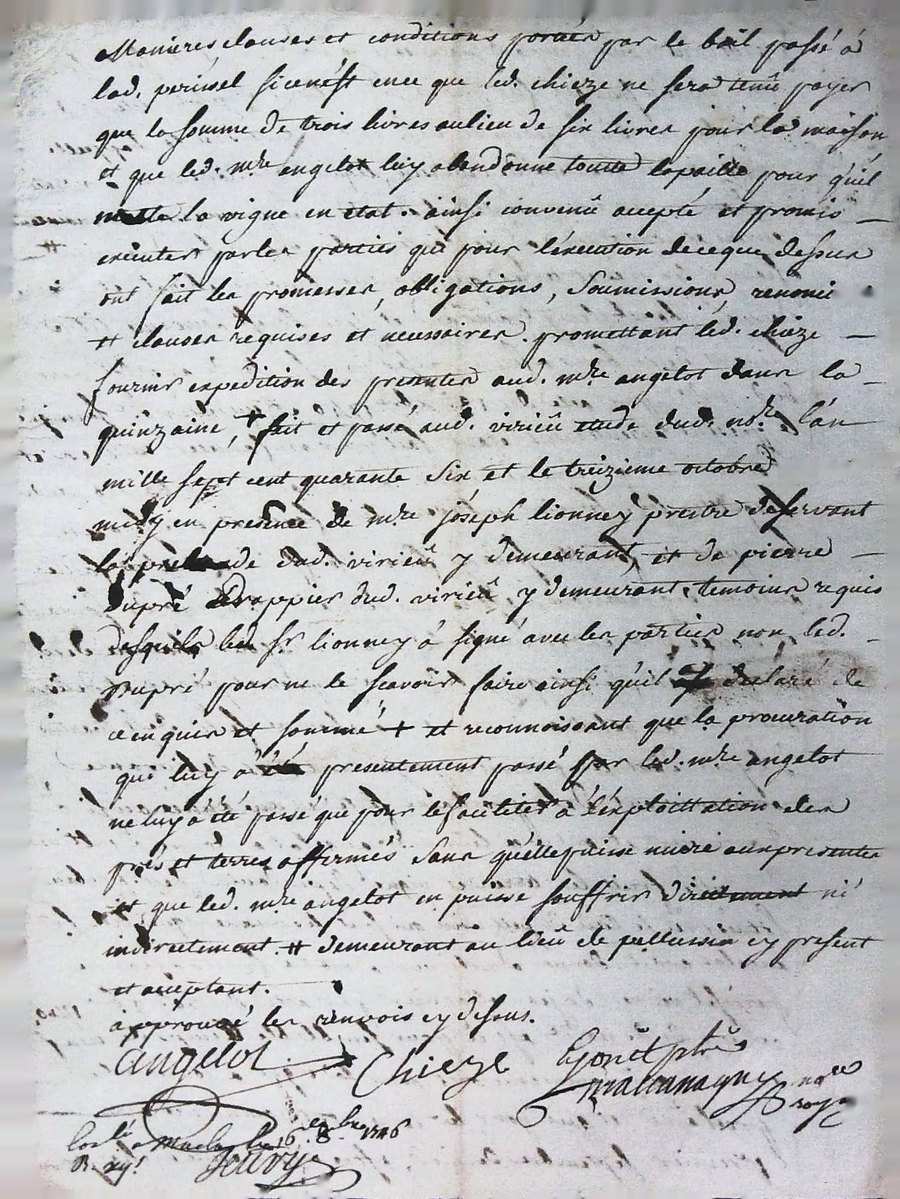 Manieres clauses et conditions portés par le bail passé á
lad. perinel si ce n'est en ce que led. chieze ne sera tenû payer
que la somme de trois livres au lieu de six livres pour la maison
et que led. mre angelot luy abandonne toutte la paille pour qu'il
mette la vigne en état. ainsi convenû accepté et promis
exécuter par les parties qui pour l'execution de ce que dessus
ont fait les promesses, obligations, soumissions, renonci
et clauses requises et necessaires. promettant led. chieze
fournir expedition des presentes aud. mre angelot dans la
quinzaine, + fait et passé aud. virieû etude dud. nore l'an
mille sept cent quarante six et le treizieme octobre
midy en presence de mre joseph lionney prestre deservant
la prebande dud. virieû y demeurant, et de pierre
dupré drappier dud. virieû y demeurant temoins requis
desquels led. sr lionney á signé avec les parties non led.
dupré pour ne le scavoir faire ainsi qu'il á declaré de
ce enquis et sommé + et reconnoissant que la procuration
que luy á été presentement passé par led. mre angelot
ne luy á été passé que pour le faciliter á l'exploittation des
prés et terres affermés sans qu'elle puisse nuire aux presentes
et que led. mre angelot en puisse souffrir directement ni
indirectement. # demeurant au lieû de pellussin cy present
et acceptant.
approuvé les renvois cy dessus.
angelot Chieze
nore
roy.
á le 16 8bre 1746